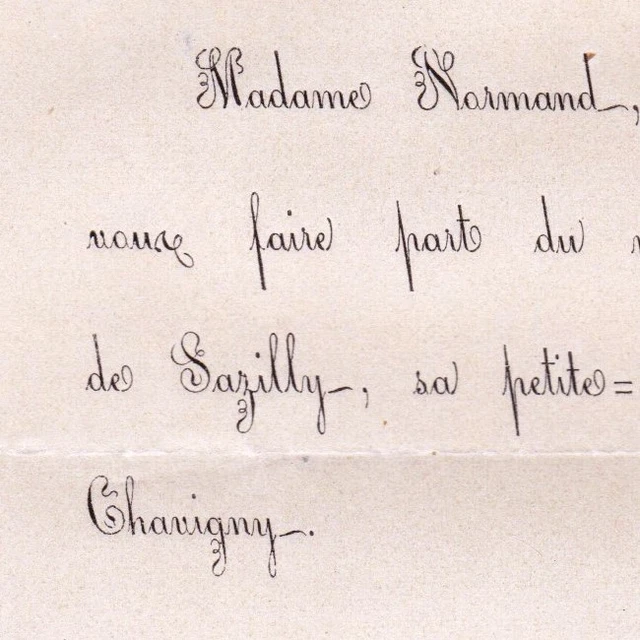 Madame Normand,
vous faire part du
de Sazilly, sa petite=
Chavigny.